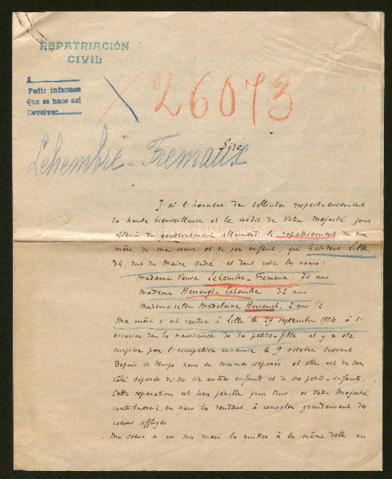 REPATRIACIÓN
CIVIL
A
Pedir informes
Que se haga así
Devolver
26073
Sire,
Lehembre-Fremaux
J'ai l'honneur de solliciter respectueusement
la haute bienveillance et le crédit de Votre Majesté pour
obtenir du gouvernement allemand le rapatriement de ma
mère de ma sœur et de son enfant, qui habitent Lille
34, rue du Maire André et dont voici les noms:
Madame Veuve Lehembre Fremaux 74 ans
Madame Lehembre 32 ans
Mademoiselle Madeleine 2 ans ½
Ma mère s'est rendue à Lille le 29 septembre 1914 à l'
occasion de la naissance de sa petite-fille et y a été
surprise par l'occupation ennemie le 9 octobre suivant.
Depuis ce temps nous en sommes séparés, et elle est de son
côté séparée de ses six autres enfants et de ses petits-enfants.
Cette séparation est bien pénible pour tous, et Votre Majesté
contribuerait en nous la rendant, à consoler grandement des
cœurs affligés.
Ma sœur a vu son mari la quitter à la même date au